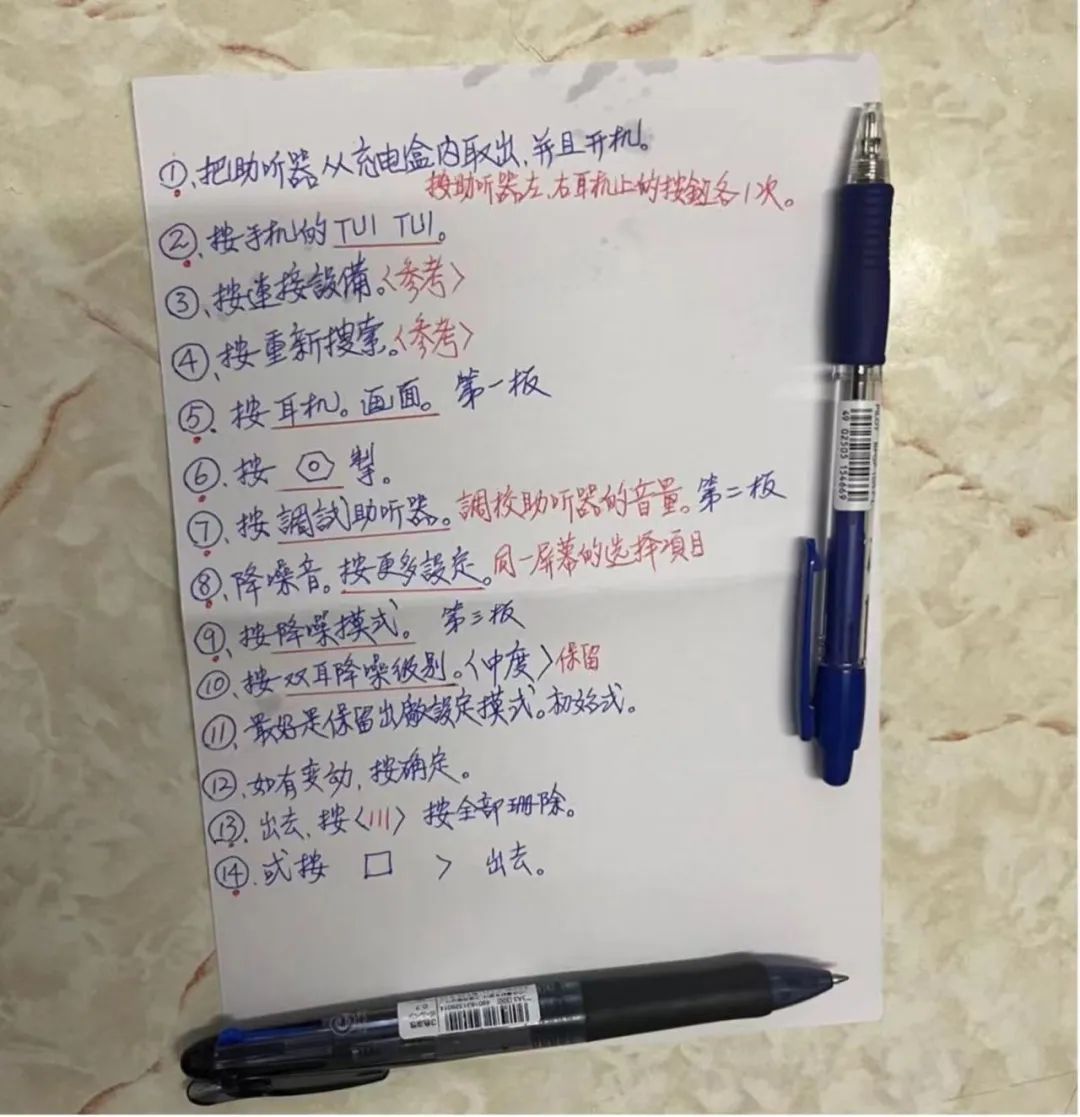 ①、把助听器从充电盒内取出,并且开机。
按助听器左、右耳机上的按鈕各1次。
②、按手机的 TUI TUI。
③、按連接設備。〈参考〉
④、按重新搜索。〈参考〉
⑤、按耳机。画面。 第一板
⑥、按 掣。
⑦、按調試助听器。調校助听器的音量。第二板
⑧、降噪音。按更多設定。同一屏幕的选择項目
⑨、按降噪摸式。 第三板
⑩、按双耳降噪级别。〈中度〉保留
⑪、最好是保留出廠設定摸式。初始式。
⑫、如有变动,按确定。
⑬、出去,按〈111〉按全部珊除。
⑭、或按 □ > 出去。
PILOT
49 02505 154669